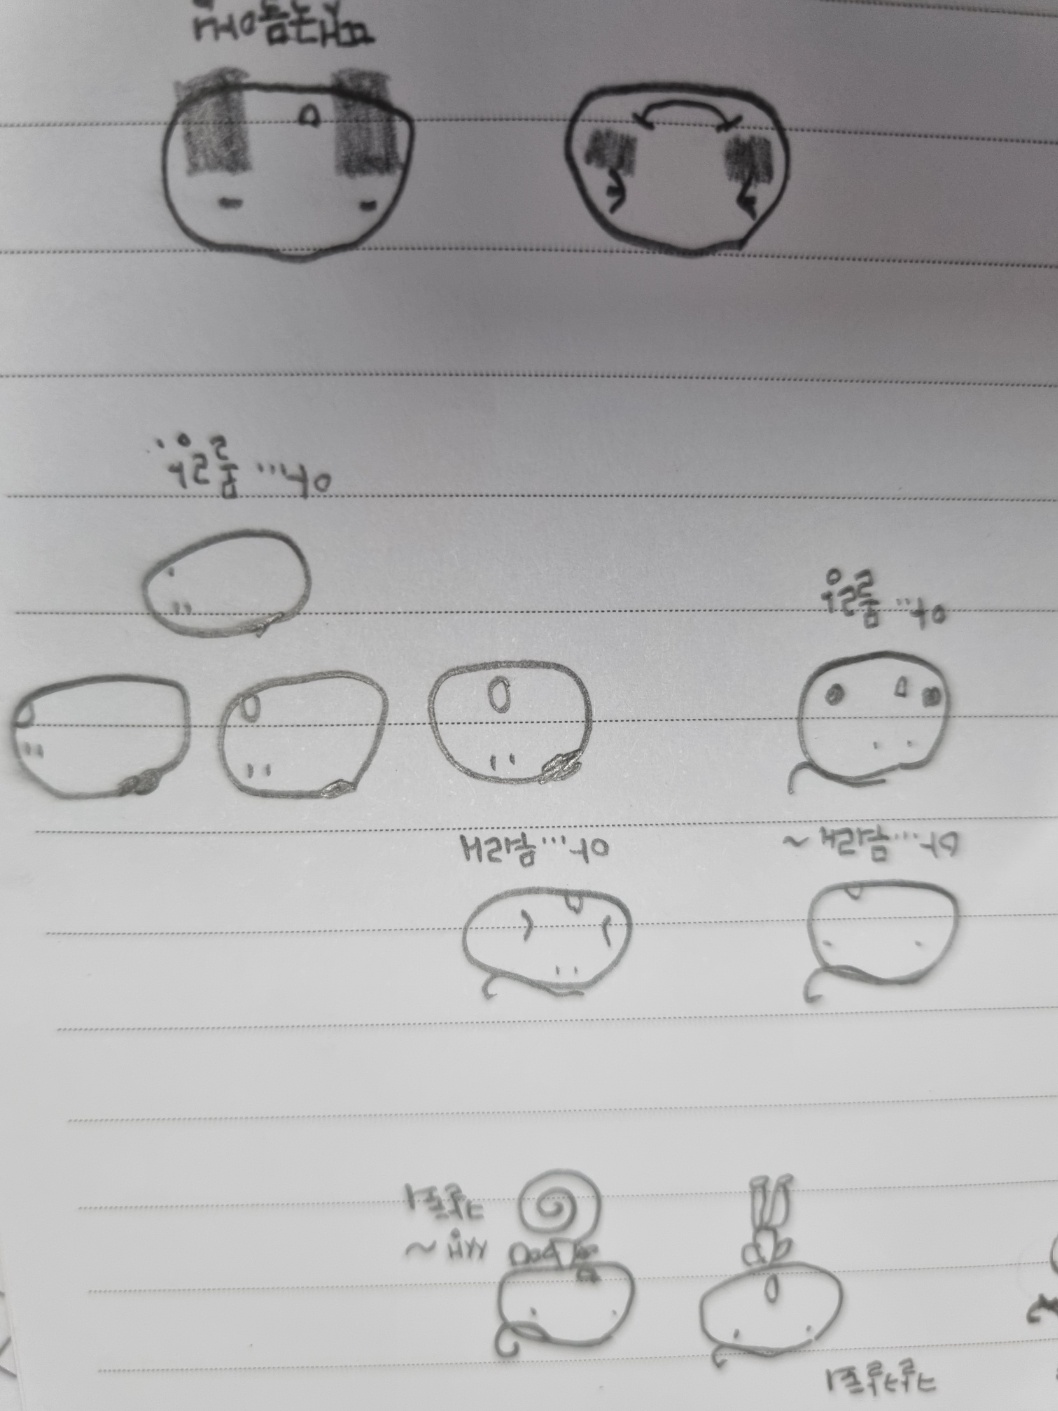 칼칼퇴
쌩~
칼퇴
아...뭐래~
아...뭐래
아.. 몰랑
아... 몰랑.
땟국물아님